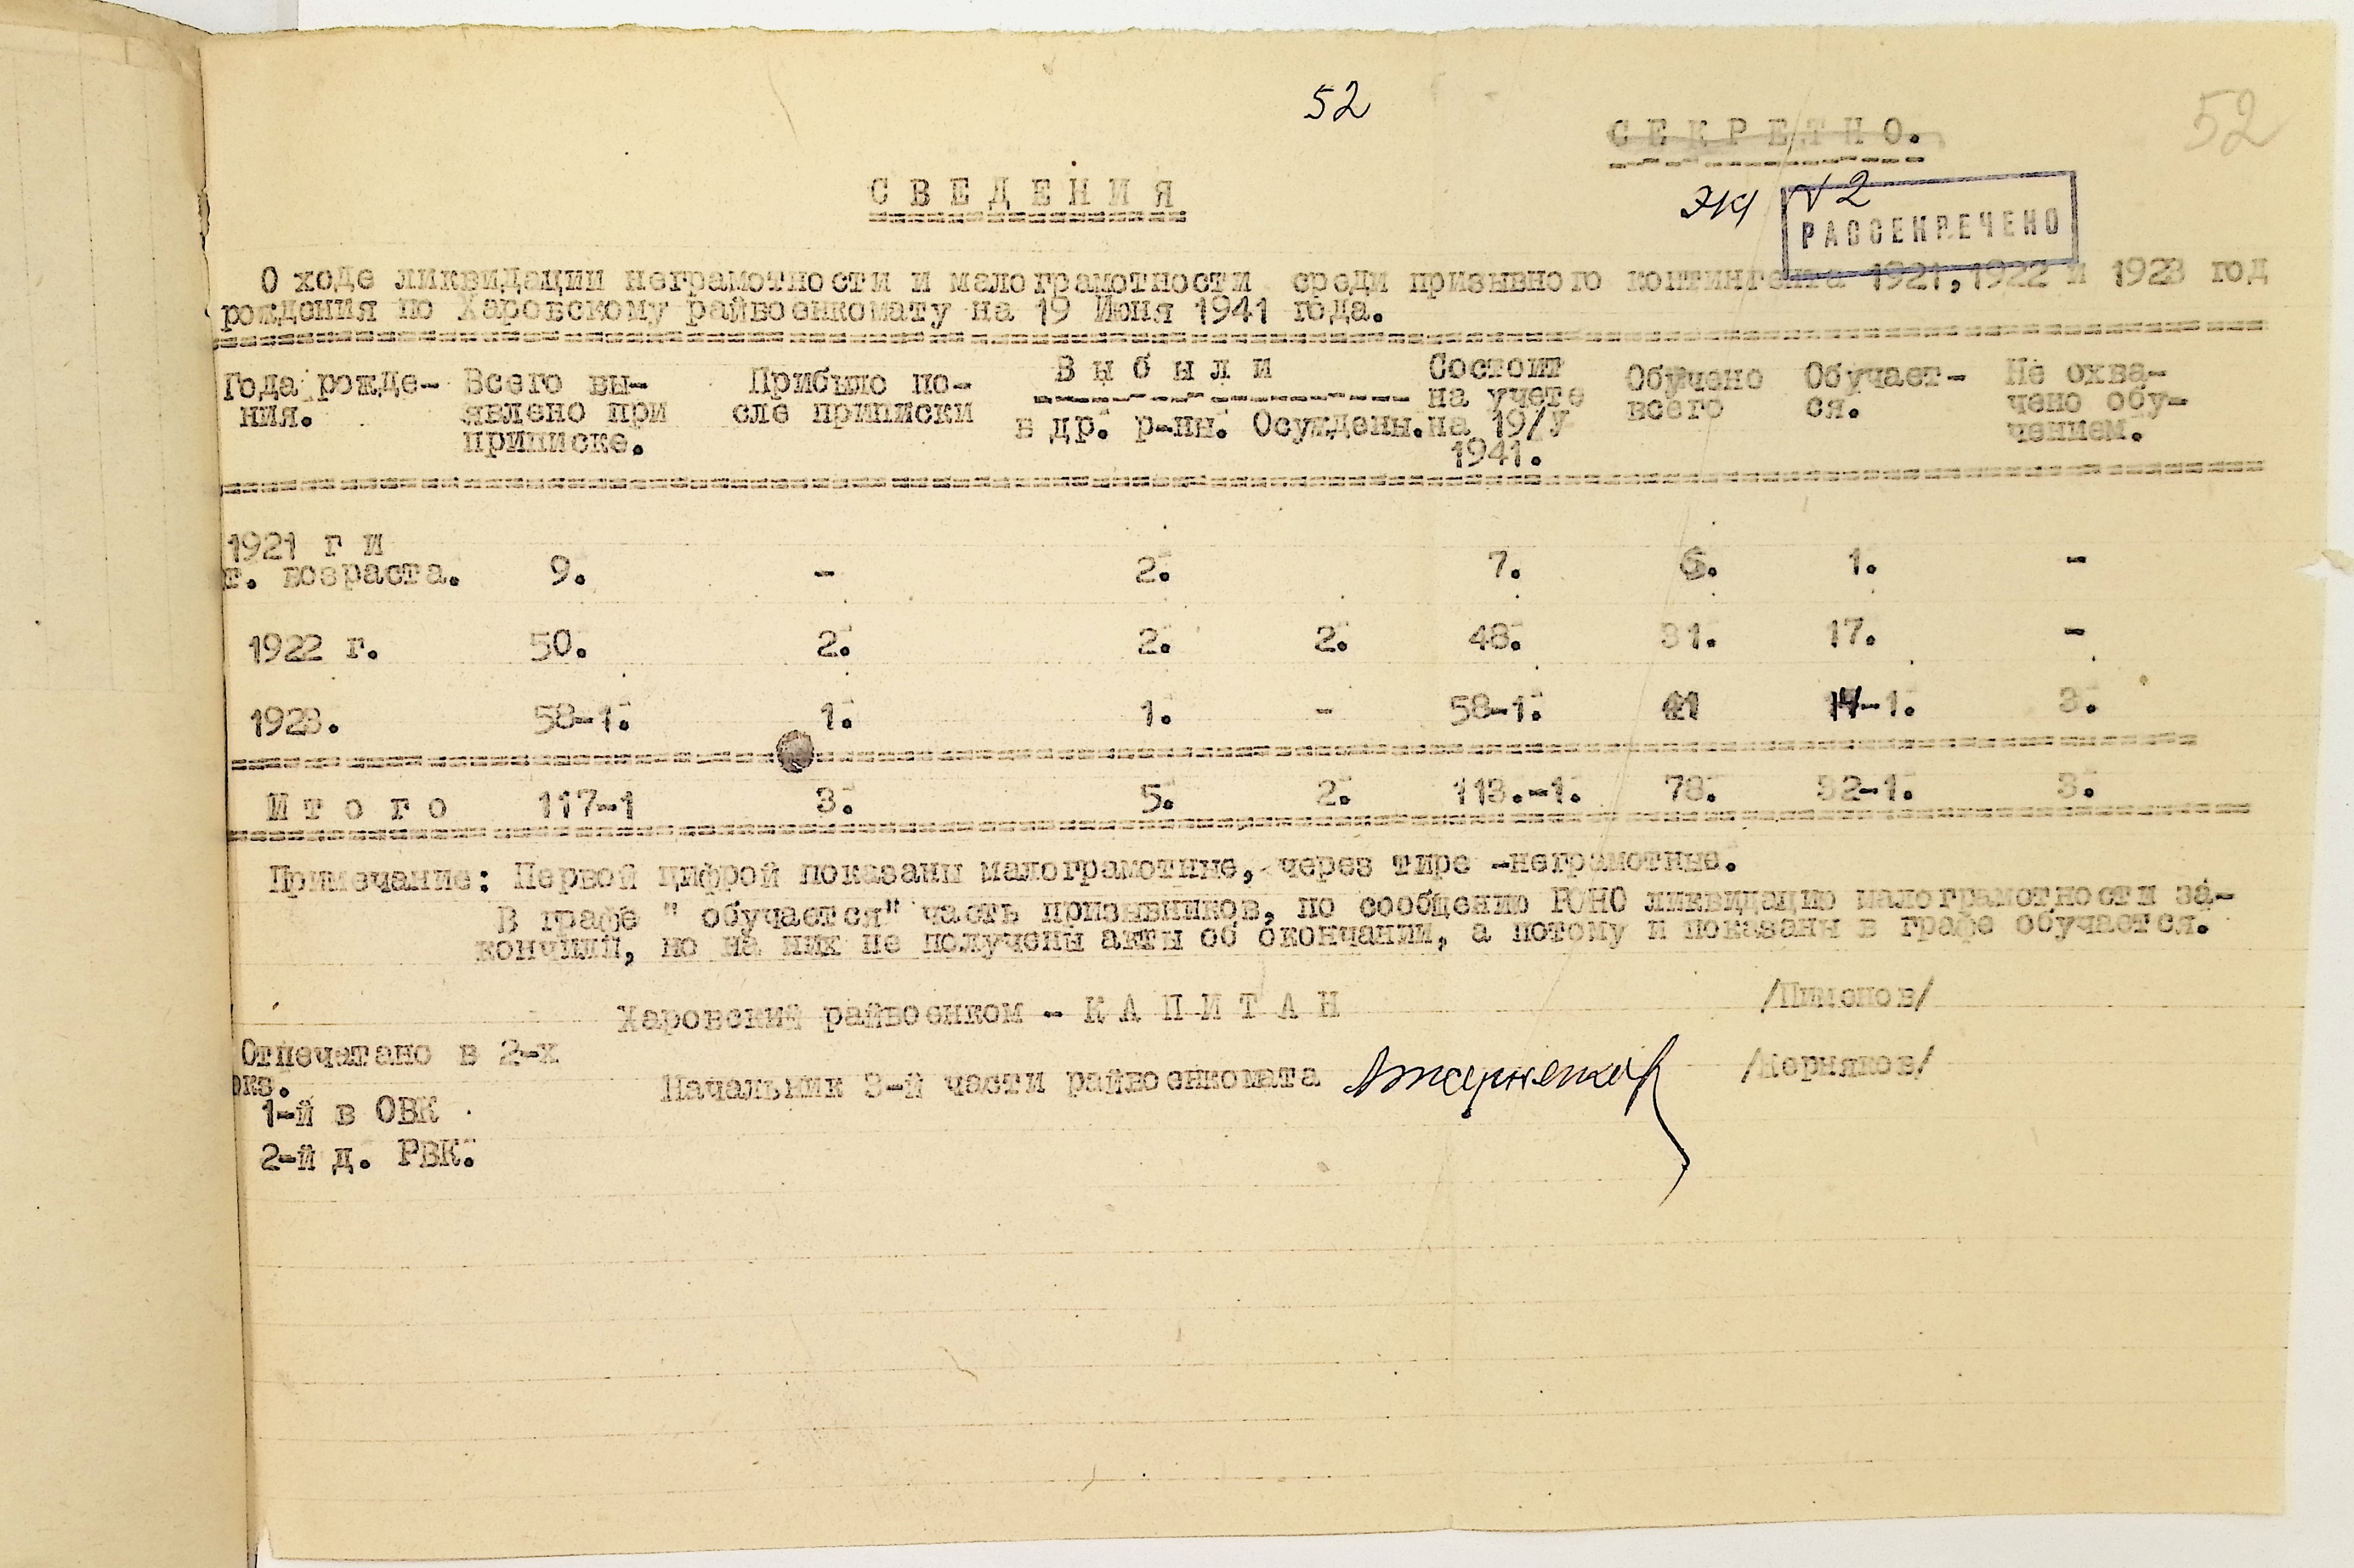 52
52
СЕКРЕТНО.
ЭК N 2
РАССЕКРЕЧЕНО
СВЕДЕНИЯ
О ходе ликвидации неграмотности и малограмотности среди призывного контингента 1921,1922 и 1923 год
рождения по Харовскому райвоенкомату на 19 Июня 1941 года.
Года рожде- Всего вы- Прибыло по- Выбыли Состоит Обучено Обучает- Не охва-
ния. явлено при сле приписки на учете всего ся. чено обу-
приписке. в др. р-ны. Осуждены. на 19/У чением.
1941.
1921 г и
г. возраста. 9. - 2. 7. 6. 1. -
1922 г. 50. 2. 2. 2. 48. 31. 17. -
1923. 58-1. 1. 1. - 58-1. 41 14-1. 3.
Итого 117-1 3. 5. 2. 113.-1. 78. 32-1. 3.
Примечание: Первой цифрой показаны малограмотные, через тире -неграмотные.
В графе " обучается" часть призывников, по сообщению РОНО ликвидацию малограмотности за-
кончили, но на них не получены акты об окончании, а потому и показаны в графе обучается.
Харовский райвоенком - КАПИТАН /Пименов/
Отпечатано в 2-х
экз.
Начальник 3-й части райвоенкомата /Корняков/
1-й в ОВК
2-й д. РВК.